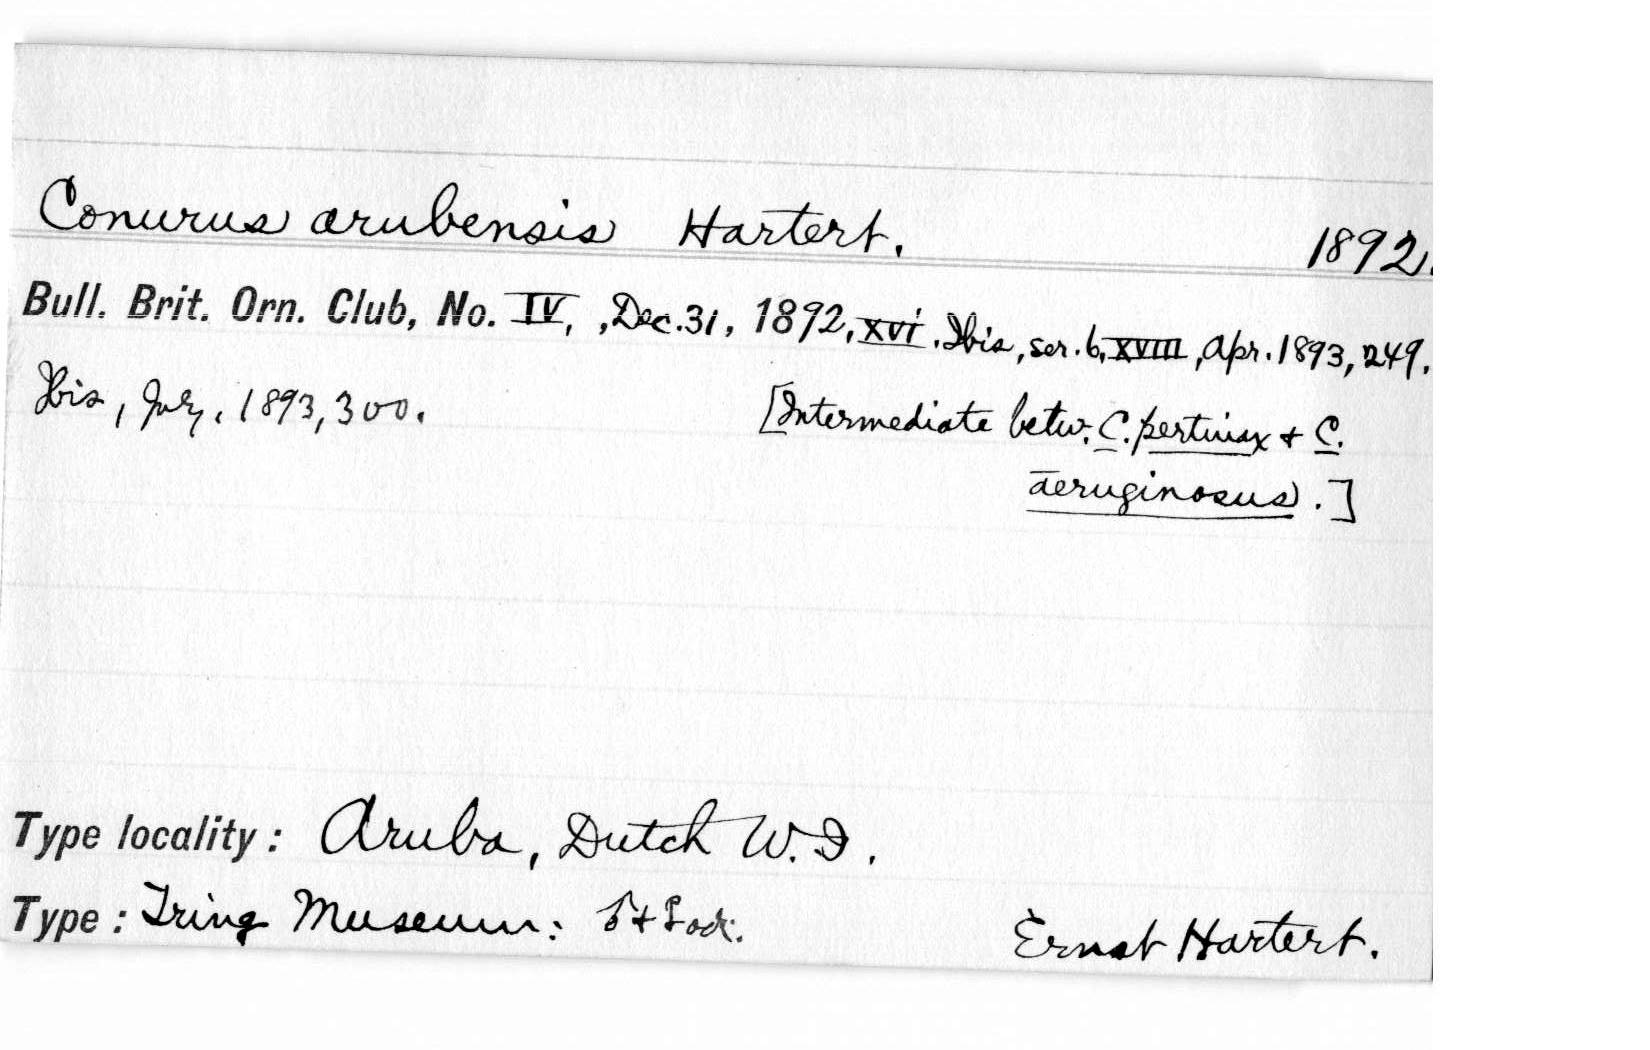 Conurus arubensis Hartert. 1892.
Bull. Brit. Orn. Club, No. IV, , Dec. 31, 1892, xvi. Ibis, ser. 6, XVIII, Apr. 1893, 249.
Ibis, July, 1893, 300. [Intermediate betw. C. pertinax + C.
aeruginosus.]
Type locality: Aruba, Dutch W. I.
Type: Tring Museum: ♂ + ♀ ad.
Ernst Hartert.